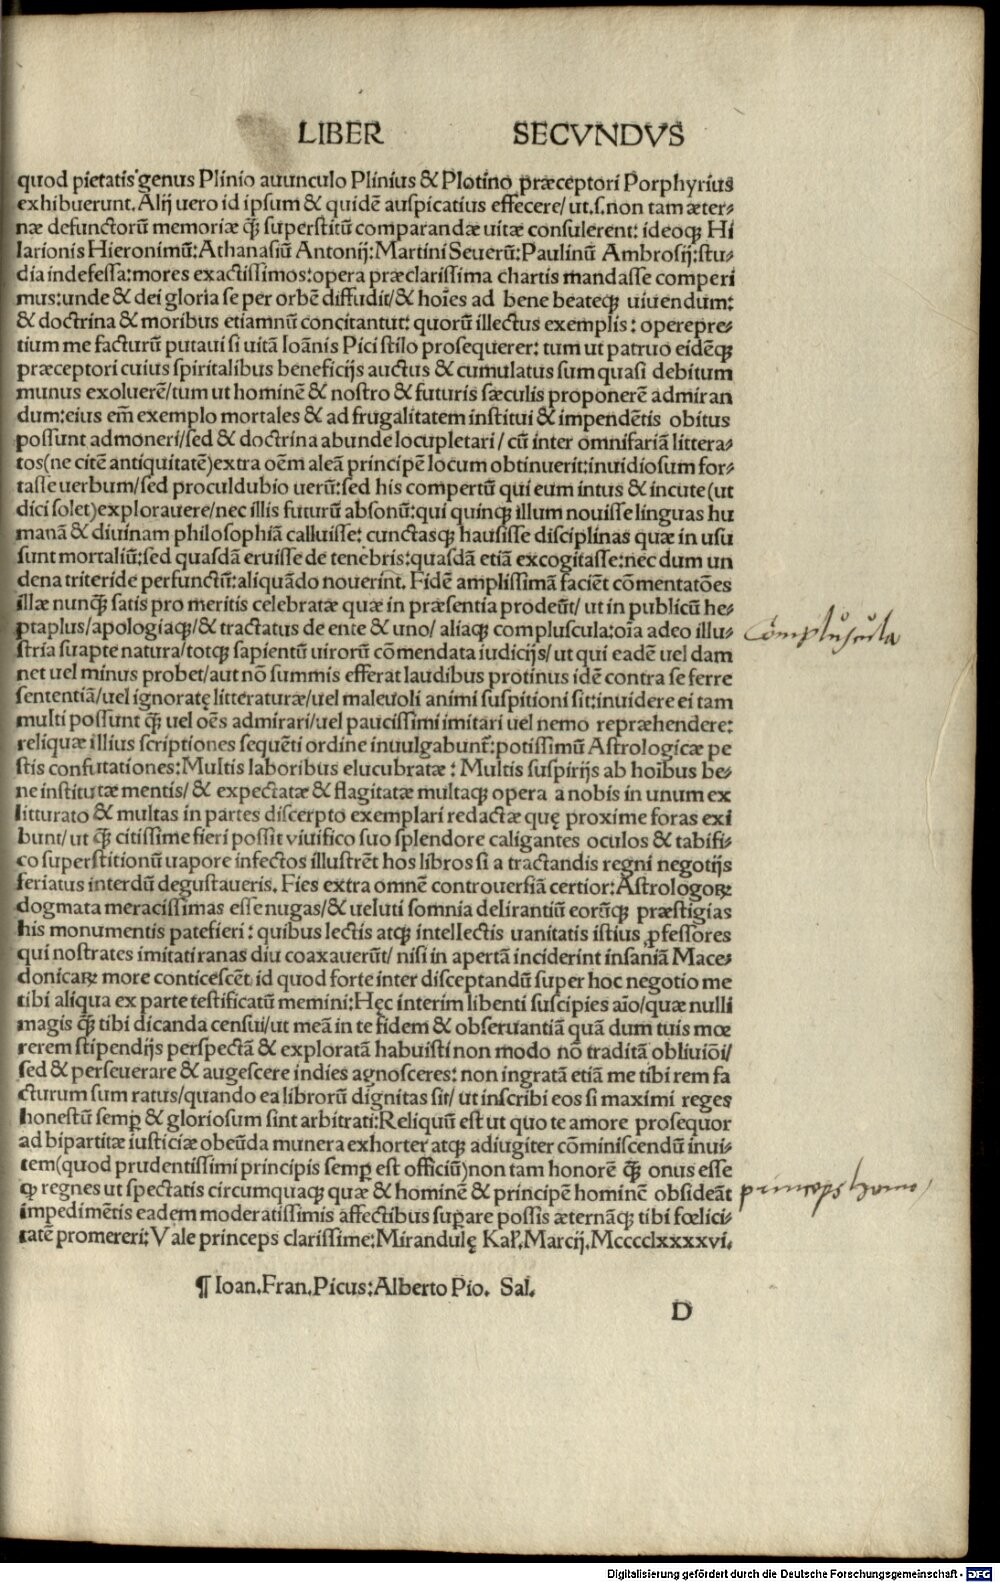 LIBER SECVNDVS
quod pietatis genus Plinio auunculo Plinius & Plotino præceptori Porphyrius
exhibuerunt. Alij uero id ipsum & quidē auspicatius effecere/ ut.s.non tam æter-
næ defunctorū memoriæ q̄ superstitū comparandæ uitæ consulerent: ideoq; Hi
larionis Hieronimū: Athanasiū Antonij: Martini Seuerū: Paulinū Ambrosij: stu-
dia indefessa: mores exactissimos: opera præclarissima chartis mandasse comperi
mus: unde & dei gloria se per orbē diffudit/ & hoīes ad bene beateq; uiuendum:
& doctrina & moribus etiamnū concitantur: quorū illectus exemplis: operepre-
tium me facturū putaui si uitā Ioānis Pici stilo prosequerer: tum ut patruo eidēq;
præceptori cuius spiritalibus beneficijs auctus & cumulatus sum quasi debitum
munus exoluerē/ tum ut hominē & nostro & futuris sæculis proponerē admiran
dum: eius em̄ exemplo mortales & ad frugalitatem institui & impendētis obitus
possunt admoneri/ sed & doctrina abunde locupletari/ cū inter omnifariā littera-
tos(ne citē antiquitatē)extra oēm aleā principē locum obtinuerit: inuidiosum for-
tasse uerbum/ sed proculdubio uerū: sed his compertū qui eum intus & incute(ut
dici solet)explorauere/ nec illis futurū absonū: qui quinq; illum nouisse linguas hu
manā & diuinam philosophiā calluisse: cunctasq; hausisse disciplinas quæ in usu
sunt mortaliū: sed quasdā eruisse de tenebris: quasdā etiā excogitasse: nec dum un
dena triteride perfunctū: aliquādo nouerint. Fidē amplissimā faciēt cōmentatōes
illæ nunq̄ satis pro meritis celebratæ quæ in præsentia prodeūt/ ut in publicū he-
ptaplus/ apologiaq;/ & tractatus de ente & uno/ aliaq; compluscula: oīa adeo illu-
stria suapte natura/ totq; sapientū uirorū cōmendata iudicijs/ ut qui eadē uel dam
net uel minus probet/ aut nō summis efferat laudibus protinus idē contra se ferre
sententiā/ uel ignoratę litteraturæ/ uel maleuoli animi suspitioni sit: inuidere ei tam
multi possunt q̄ uel oēs admirari/ uel paucissimi imitari uel nemo repræhendere:
reliquæ illius scriptiones sequēti ordine inuulgabunt̄: potissimū Astrologicæ pe
stis confutationes: Multis laboribus elucubratæ: Multis suspirijs ab hoībus be-
ne institutæ mentis/ & expectatæ & flagitatæ multaq; opera a nobis in unum ex
litturato & multas in partes discerpto exemplari redactæ quę proxime foras exi
bunt/ ut q̄ citissime fieri possit viuifico suo splendore caligantes oculos & tabifi-
co superstitionū uapore infectos illustrēt hos libros si a tractandis regni negotijs
feriatus interdū degustaueris. Fies extra omnē controuersiā certior: Astrologoꝝ
dogmata meracissimas esse nugas/ & ueluti somnia delirantiū eorūq; præstigias
his monumentis patefieri: quibus lectis atq; intellectis uanitatis istius ꝓfessores
qui nostrates imitati ranas diu coaxauerūt/ nisi in apertā inciderint insaniā Mace-
donicaꝝ more conticescēt id quod forte inter disceptandū super hoc negotio me
tibi aliqua ex parte testificatū memini: Hęc interim libenti suscipies aīo/ quæ nulli
magis q̄ tibi dicanda censui/ ut meā in te fidem & obseruantiā quā dum tuis mœ
rerem stipendijs perspectā & exploratā habuisti non modo nō traditā obliuiōi/
sed & perseuerare & augescere indies agnosceres: non ingratā etiā me tibi rem fa
cturum sum ratus/ quando ea librorū dignitas sit/ ut inscribi eos si maximi reges
honestū semꝑ & gloriosum sint arbitrati: Reliquū est ut quo te amore prosequor
ad bipartitæ iusticiæ obeūda munera exhorter atq; adiugiter cōminiscendū inui-
tem(quod prudentissimi principis semꝑ est officiū)non tam honorē q̄ onus esse
ꝙ regnes ut spectatis circumquaq; quæ & hominē & principē hominē obsideāt
impedimētis eadem moderatissimis affectibus suꝑare possis æternāq; tibi fœlici-
tatē promereri: Vale princeps clarissime: Mirandulę Kal̓. Marcij. Mcccclxxxxvi.
¶ Ioan. Fran. Picus: Alberto Pio. Sal.
D
Complŭscula
princeps homo
Digitalisierung gefördert durch die Deutsche Forschungsgemeinschaft - DFG